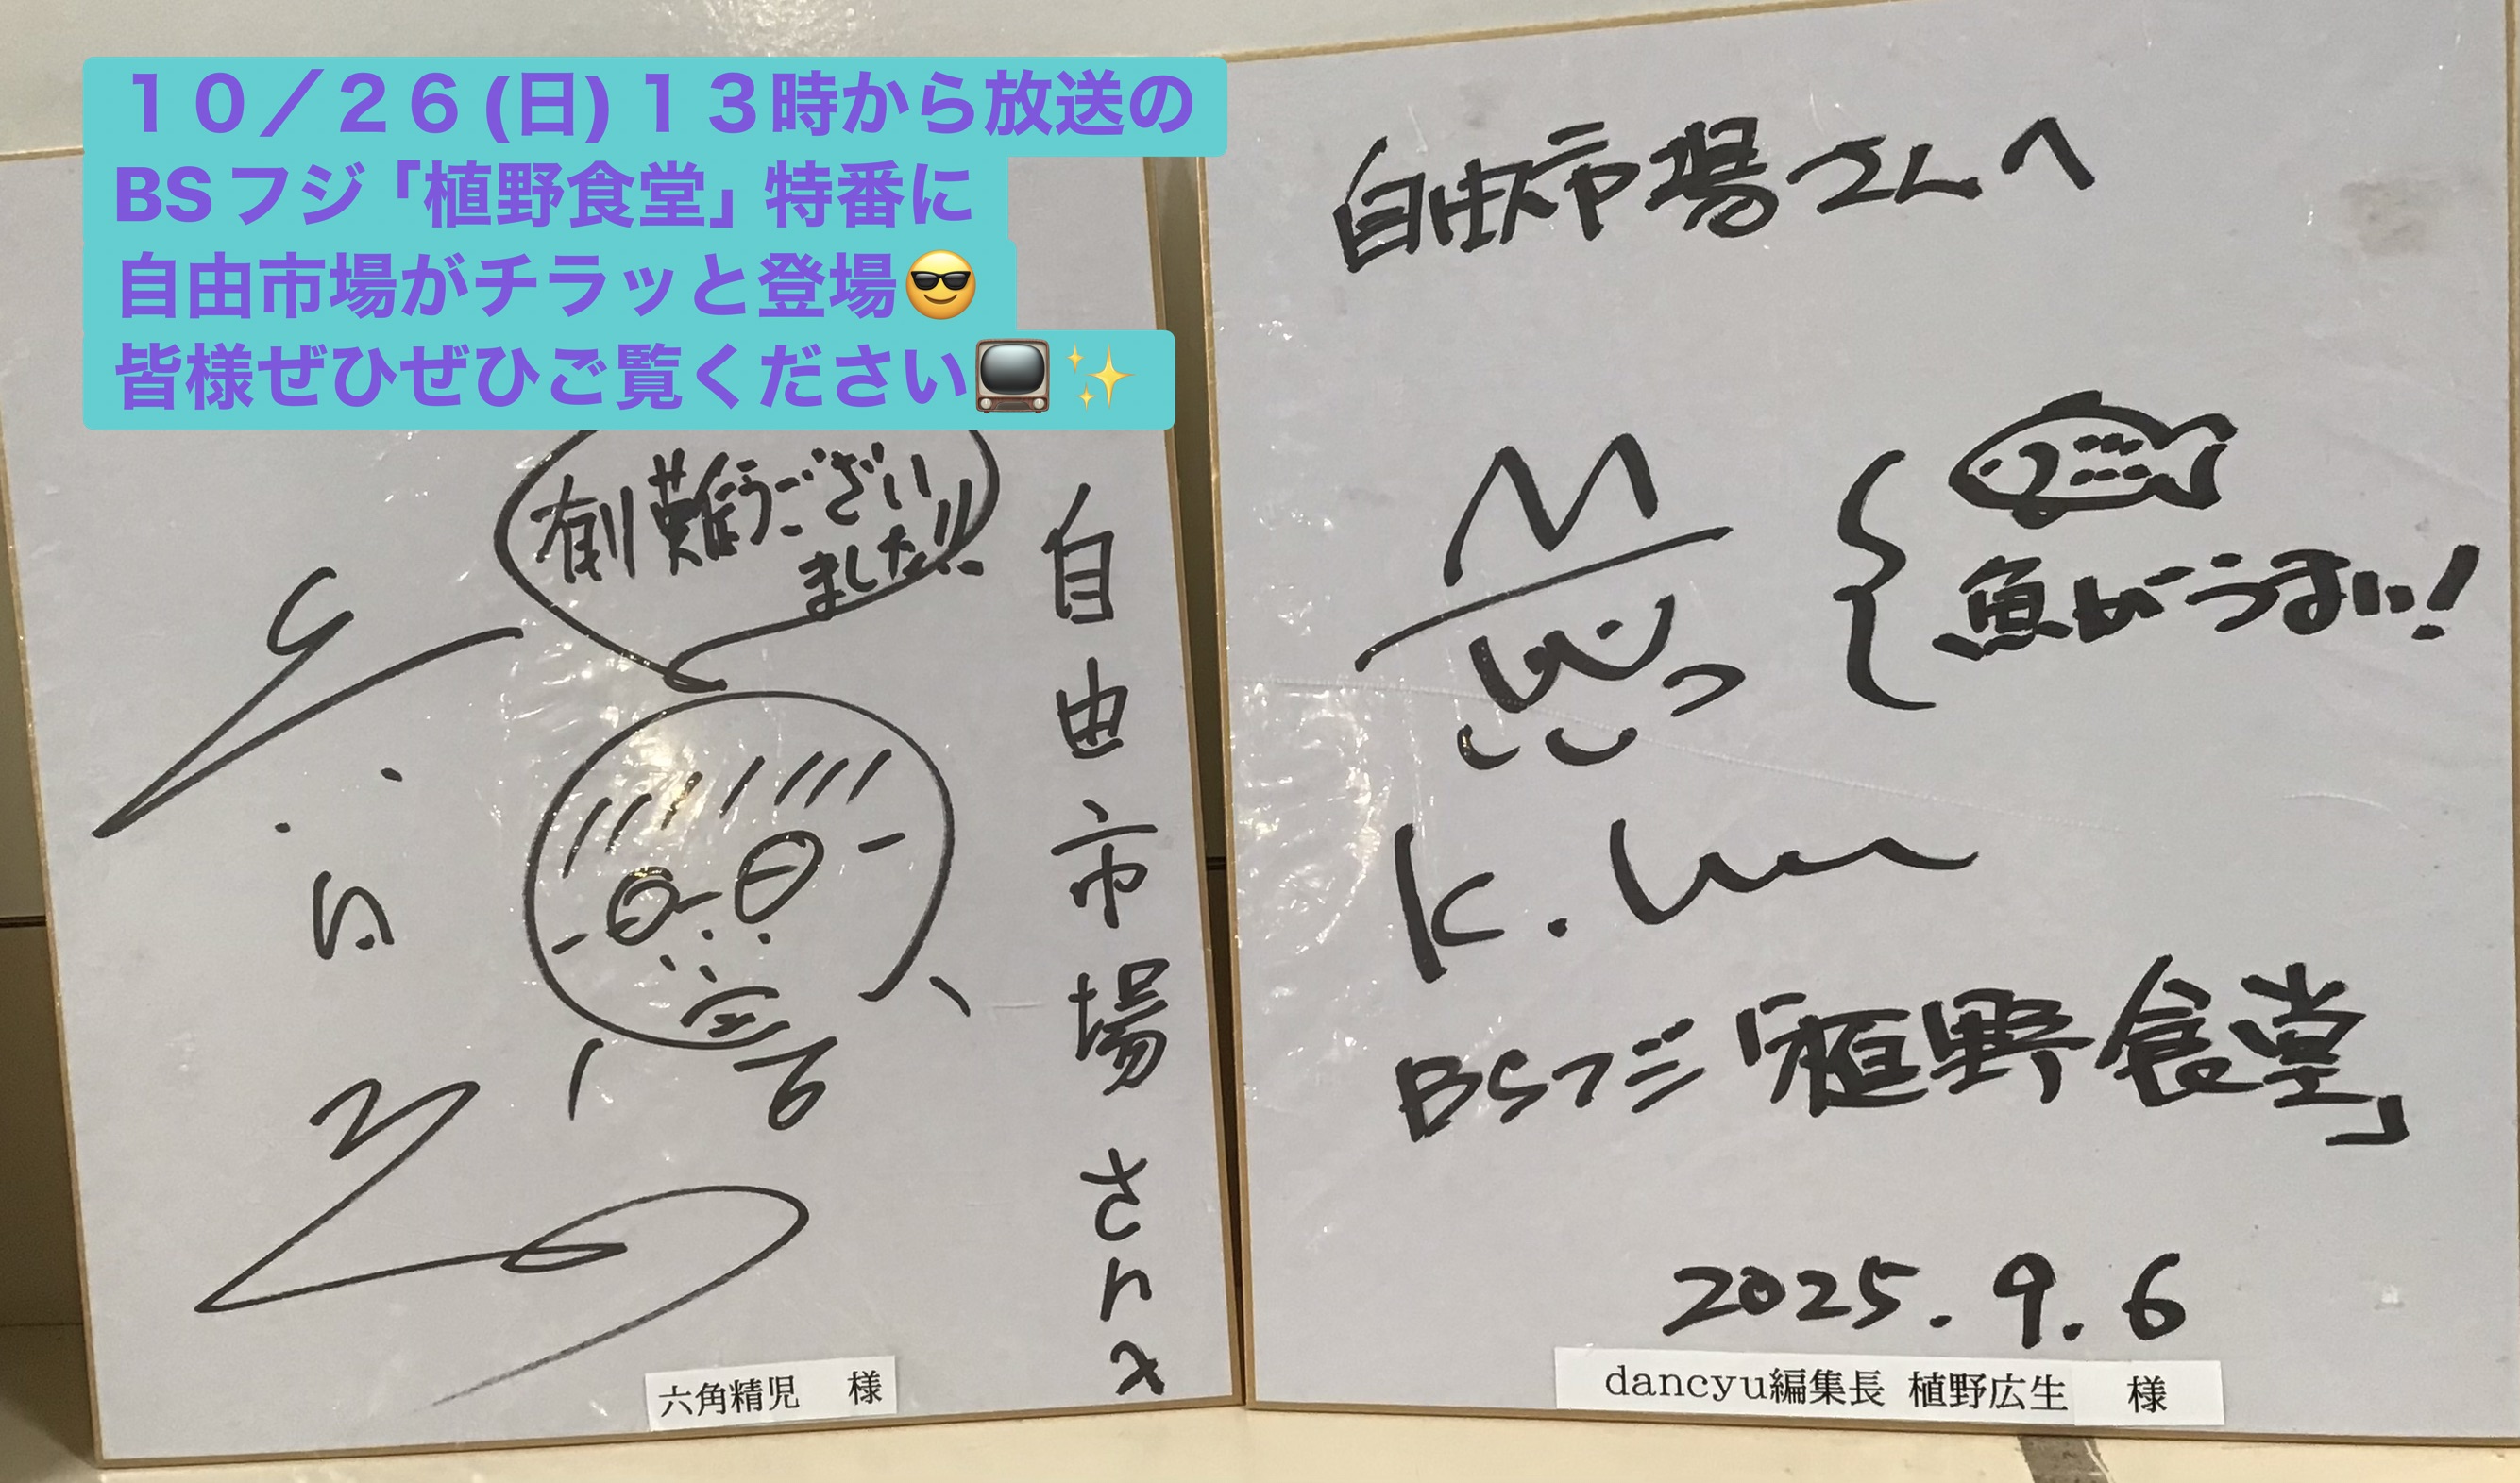 １０／２６(日)１３時から放送の
BSフジ「植野食堂」特番に
自由市場がチラッと登場😎
皆様ぜひぜひご覧ください📺✨
有難うござい
ました!!
自由市場さん江
六角精児　様
自由市場さんへ
魚がうまい!
BSフジ「植野食堂」
2025.9.6
dancyu編集長 植野広生　様